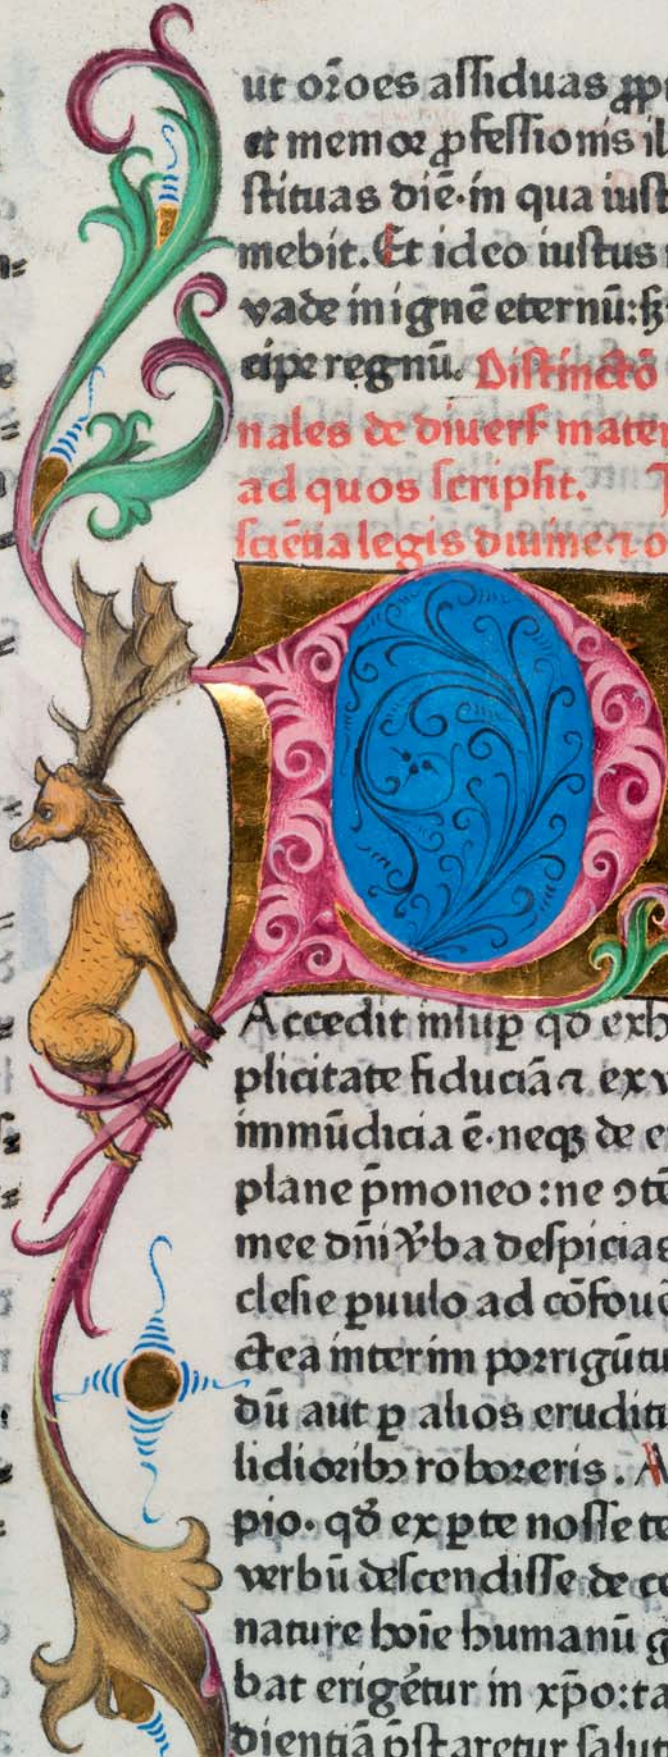 ut or̄oes assiduas ꝓp
et memor ꝓfessionis il
stituas diē·in qua iust
mebit. Et ideo iustus
vade in ignē eternū:ꝫ
cipe regnū. Distinctō
nales de diuers mater
ad quos scripsit. T
sciētia legis diuine ⁊ o
D
Accedit insuꝑ qđ exh
plicitate fiduciā ⁊ ex v
immūdicia ē·neqꝫ de e
plane p̄moneo:ne ↄtē
mee dn̄i v̓ba despicias
clesie ꝑuulo ad cōfoue
ctea interim porrigūtu
dū aut ꝑ alios erudita
lidioribꝰ roboreris. A
pio· qđ ex ꝑte nosse te
verbū descendisse de ce
nature hoīe humanū g
bat erigētur in xp̄o:ta
dientiā p̄staretur salut